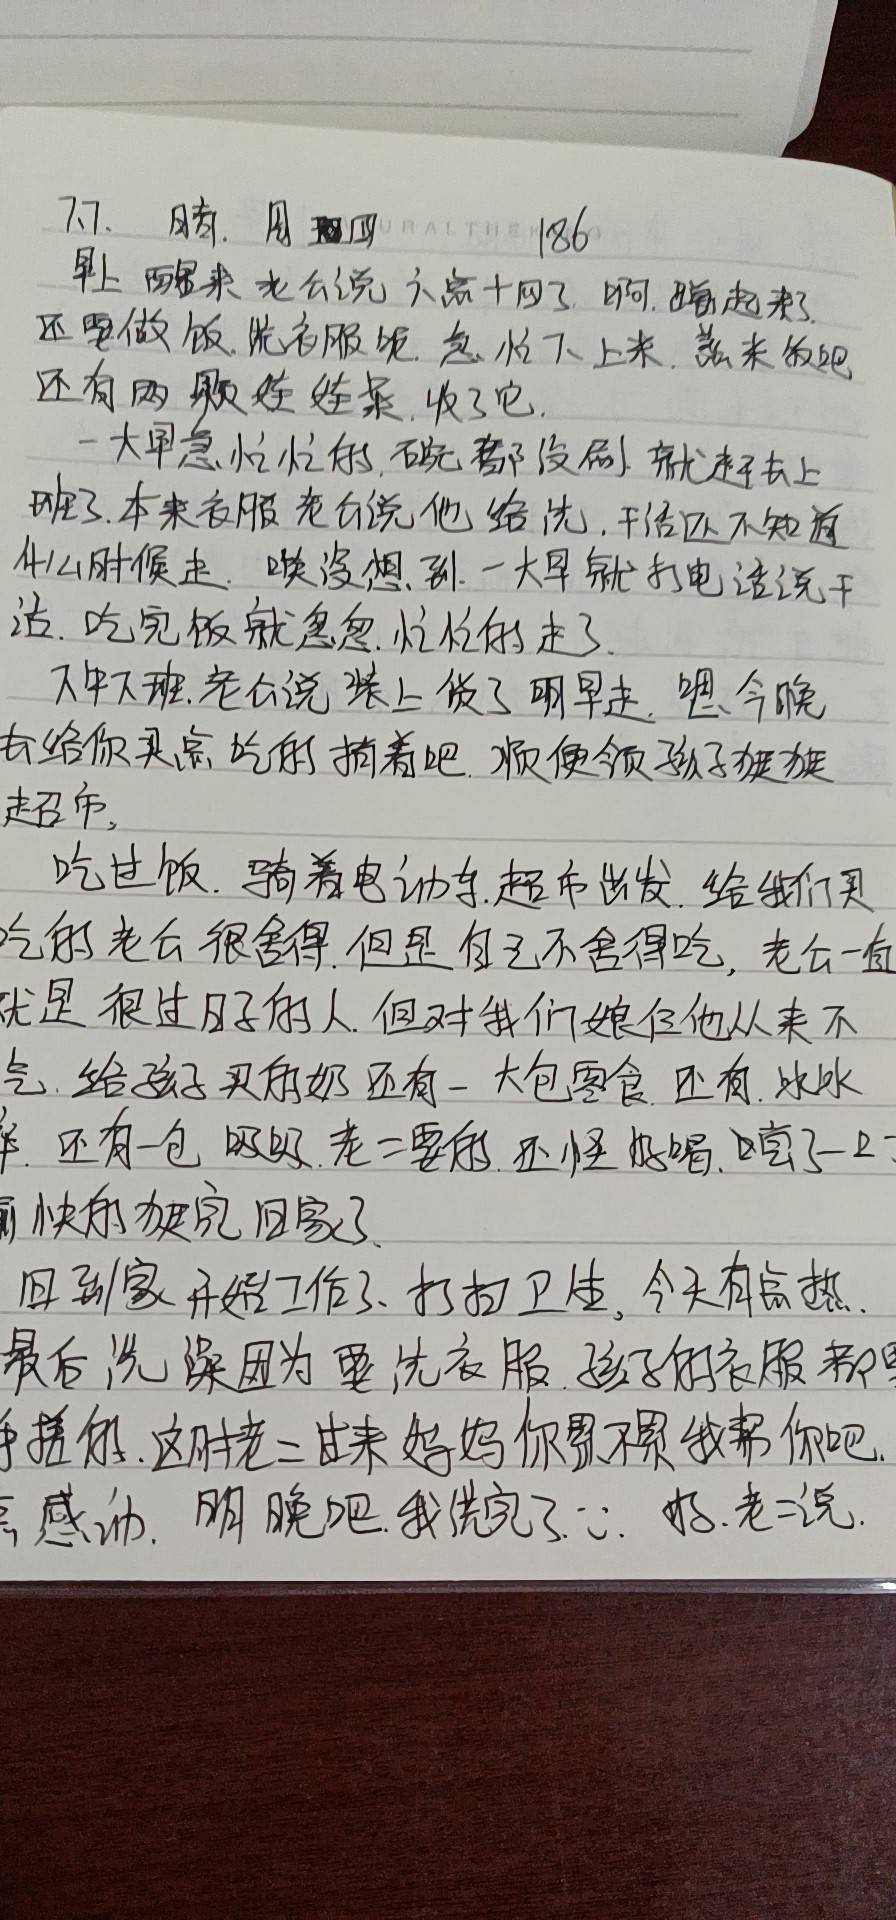 7.7. 晴. 周四 186
早上醒来老公说六点十四了. 啊. 晚起来了.
还要做饭. 洗衣服呢. 急忙下上来. 蒸米饭吧
还有两颗娃娃菜. 收了它.
一大早急忙忙的, 碗都没刷 就赶去上
班了. 本来衣服老公说他给洗. 干活还不知道
什么时候走. 唉没想到. 一大早就打电话说干
活. 吃完饭就急忽忙忙的走了.
下午下班. 老公说装上货了明早走. 嗯、今晚
去给你买点吃的捎着吧. 顺便领孩子逛逛
超市。
吃过饭. 骑着电动车. 超市出发. 给我们买
吃的老公很舍得. 但是自己不舍得吃, 老公一直
就是很过日子的人. 但对我们娘仨他从来不
给孩子买的奶还有一大包零食. 还有. 冰冰
还有一包奶奶. 老二要的. 还怪好喝. 尝了一口
愉快的逛完回家了、
回到家开始工作了、打扫卫生, 今天有点热.
最后洗澡因为要洗衣服. 孩子的衣服都要
手搓的. 这时老二过来妈妈你累不累我帮你吧.
感动. 明晚吧. 我洗完了. 好. 老二说.
URALTHE